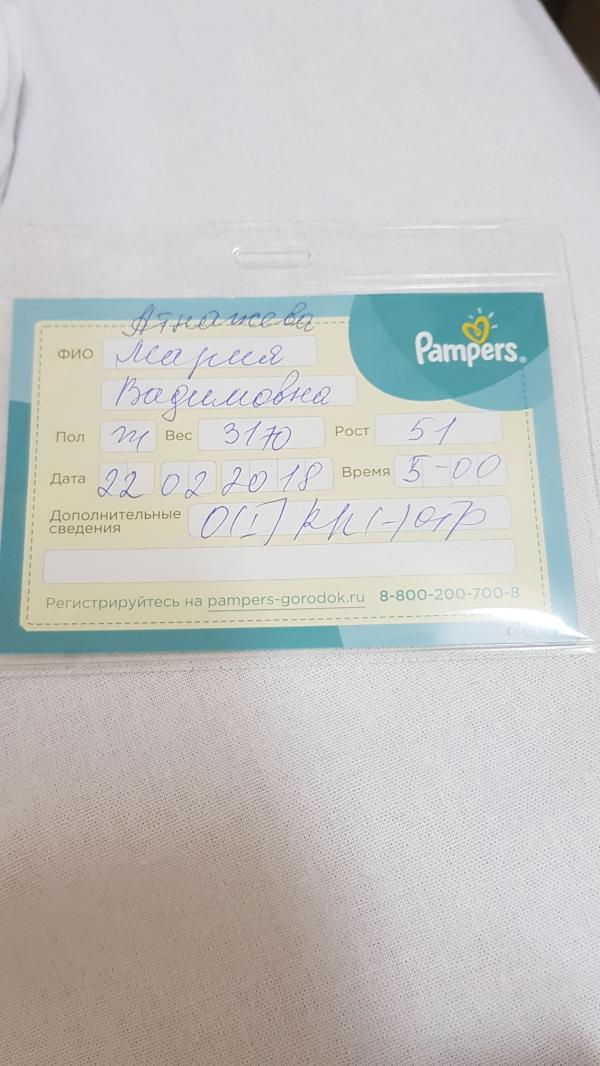 Атнажева
Pampers®
ФИО Мария
Вадимовна
Пол ж Вес 3170 Рост 51
Дата 22 02 2018 Время 5-00
Дополнительные сведения O(I) Rh(-) отр
Регистрируйтесь на pampers-gorodok.ru 8-800-200-700-8